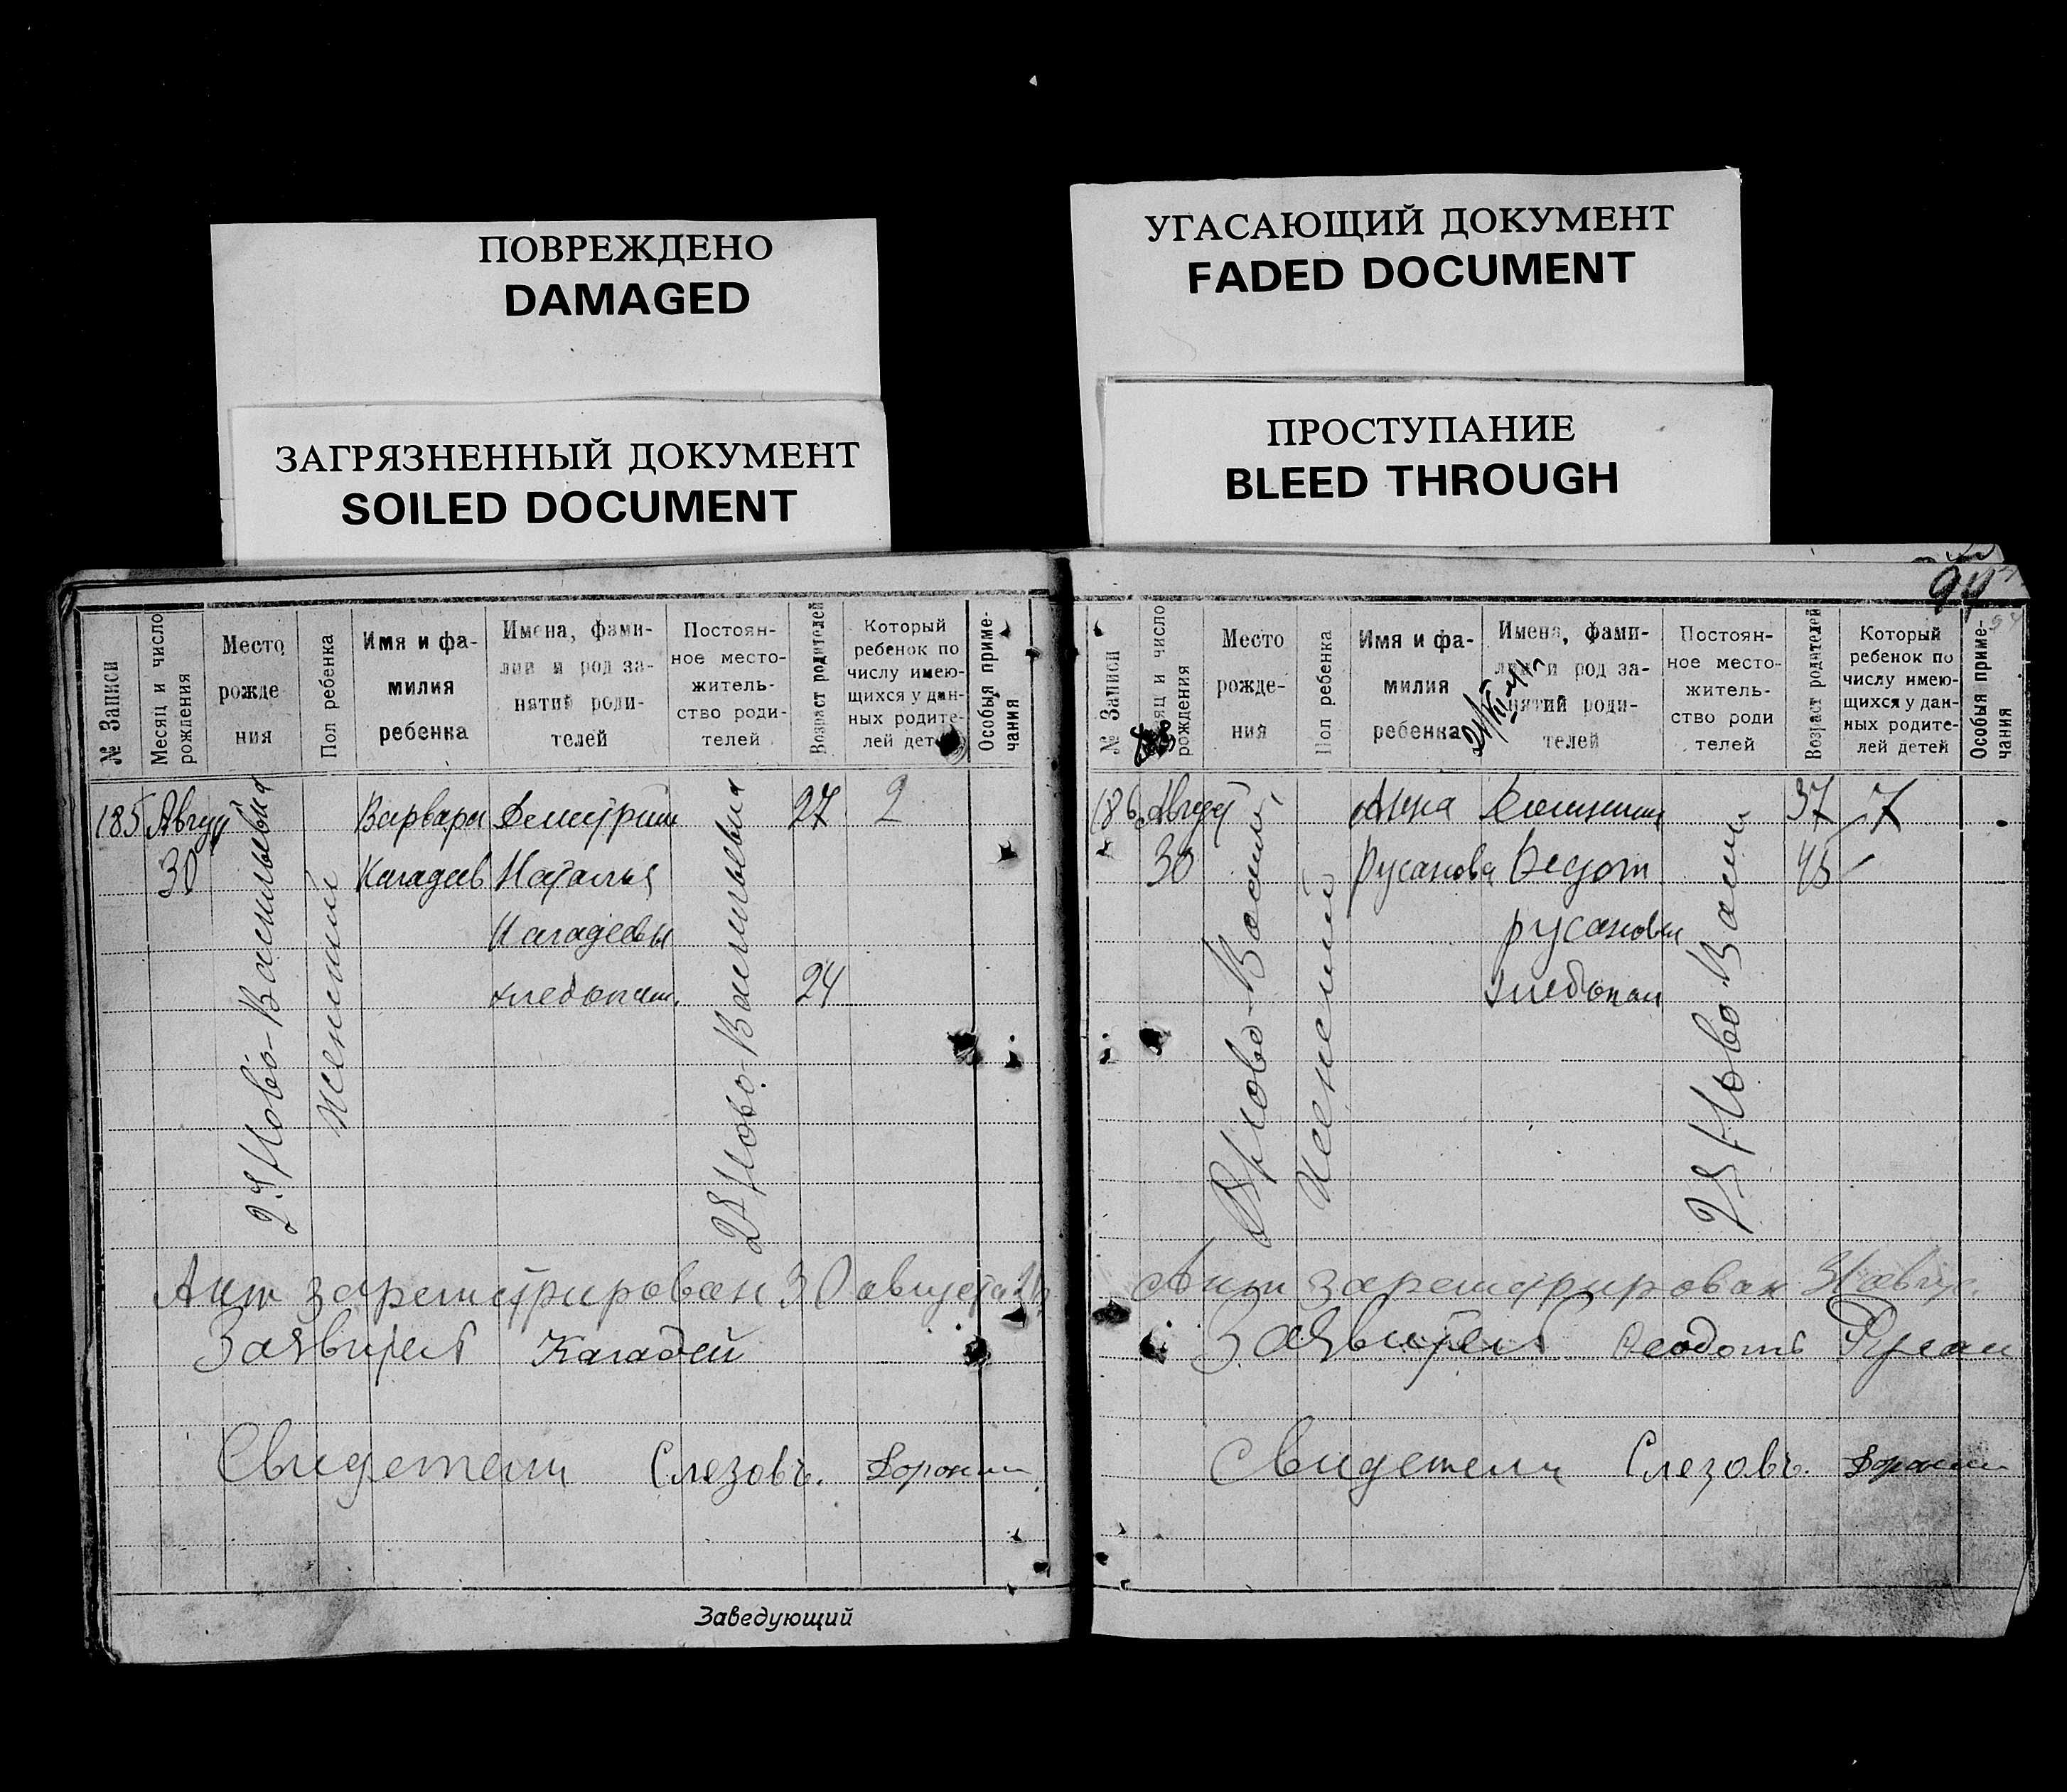 ПОВРЕЖДЕНО
DAMAGED
ЗАГРЯЗНЕННЫЙ ДОКУМЕНТ
SOILED DOCUMENT
УГАСАЮЩИЙ ДОКУМЕНТ
FADED DOCUMENT
ПРОСТУПАНИЕ
BLEED THROUGH
№ Записи
Месяц и число
рождения
Место
рожде
ния
Пол ребенка
Имя и фа-
милия
ребенка
Имена, фами-
лии и род за-
нятий роди-
телей
Постоян-
ное место-
житель-
ство роди-
телей
Возраст родителей
Который
ребенок по
числу имею-
щихся у дан-
ных родите-
лей детей
Особыя приме-
чания
185 Август Варвара Дмитрий 27 2
30 Кагадеев Наталья
Кагадеевы
хлебопаш. 24
2-я Ново-Васильевка
Женский
2я Ново-Васильевка
Акт зарегистрирован 30 августа
Заявитель Кагадей
Свидетели Слезовъ. Доронин
Заведующий
94
№ Записи
рождения
Место
рожде-
ния
Пол ребенка
Имя и фа-
милия
ребенка
Имена, фами-
лии и род за-
нятий роди-
телей
Постоян-
ное место-
житель-
ство роди
телей
Возраст родителей
Который
ребенок по
числу имею-
щихся у дан-
ных родите-
лей детей
Особыя приме-
чания
186 Август Анна 37 7
30 Русанова Федот 45
Русановы
хлебопаш
Ново-Васил
Женский
2я Ново Васил
Акт зарегистрирован 31 авгус.
Заявитель Феодотъ Русан
Свидетели Слезовъ. Доронин